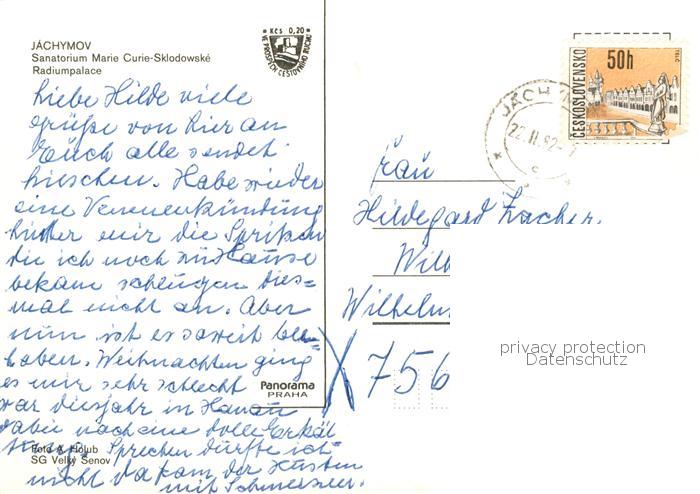 JÁCHYMOV
Sanatorium Marie Curie-Sklodowské
Radiumpalace
Kčs 0,20
VE PROSPĚCH CESTOVNÍHO RUCHU
ČESKOSLOVENSKO
50h
TELČ
JÁCHYMOV
22.II.82
Liebe Hilde viele
Grüße von hier an
Euch alle sendet
Habe wieder
eine Venenentzündung
hinter mir die Spritzen
die ich noch zu Hause
bekam schlugen dies=
mal nicht an. Aber
nun ist es soweit be=
hoben. Weihnachten ging
es mir sehr schlecht
war diesjahr in Hanau
dabei noch eine tolle Erkäl
tung. Sprechen dürfte ich
nicht da kam der Husten
mit Schmerzen.
Frau
Hildegard Zacher.
Wilh
Wilhelm
X 756
Panorama
PRAHA
Foto A. Holub
SG Velký Šenov
privacy protection
Datenschutz